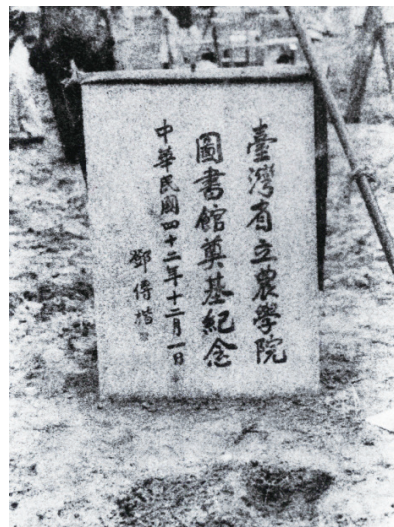 臺灣省立農學院
圖書館奠基紀念
中華民國四十二年十二月一日
鄧傳楷